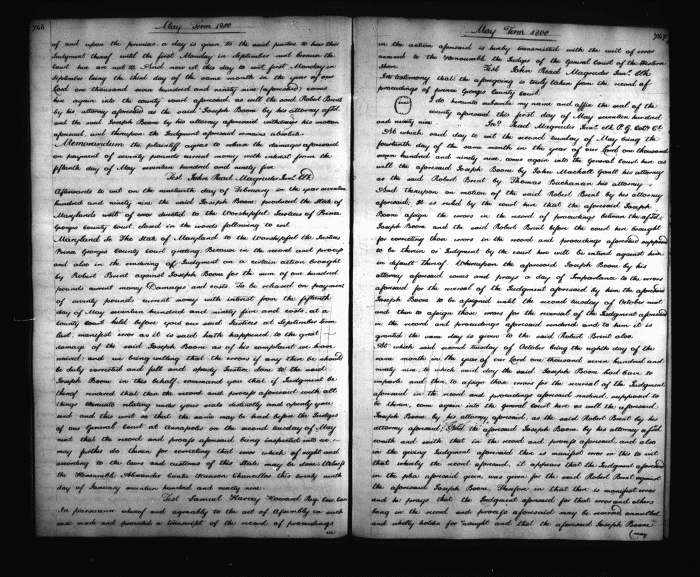 746
May Term 1800
of and upon the premises a day is given to the said parties to hear their
Judgment thereof until the first Monday in September next because the
Court here are not &c. And now at this day to wit first Monday in
September being the third day of the same month in the year of our
Lord one thousand seven hundred and ninety nine (aforesaid) comes
here again into the county court aforesaid as well the said Robert Brent
by his attorney aforesaid as the said Joseph Boone by his attorney afsd
and the said Joseph Boone by his attorney aforesaid withdraws his motion
aforesaid, and thereupon the Judgment aforesaid remains absolute.
Memorandum the plaintiff agrees to release the damages aforesaid
on payment of seventy pounds current money with interest from the
fifteenth day of May seventeen hundred and ninety five
Test John Read Magruder Junr. Clk
Afterwards to wit on the nineteenth day of February in the year seventeen
hundred and ninety nine the said Joseph Boone produced the State of
Marylands writ of error directed to the Worshipful Justices of Prince
Georges County Court, closed in the words following to wit
Maryland Sc. The State of Maryland to the Worshipful the Justices
Prince Georges County Court greeting Because in the record and process
and also in the rendering of Judgment on a certain action brought
by Robert Brent against Joseph Boone for the sum of one hundred
pounds current money Damages and costs. To be released on payment
of seventy pounds current money with interest from the fifteenth
day of May seventeen hundred and ninety five and costs, at a
County Court held before you our said Justices at September term
last manifest error as it is said hath happened to the great
damage of the said Joseph Boone as of his complaint we have
recieved and we being willing that the errors if any there be should
be duly corrected and full and speedy Justice done to the said
Joseph Boone in this behalf, command you that if Judgment be
thereof rendered that then the record and process aforesaid with all
things thereunto relating under your seals distinctly and openly you
send and this writ so that the same may be had before the Judges
of our General Court at Annapolis on the second tuesday of May
next that the record and process aforesaid being inspected into we
may further do therein for correcting that error which of right and
according to the laws and customs of this State may be done. Witness
the Honorable Alexander Contee Hanson Chancellor this twenty ninth
day of January seventeen hundred and ninety nine.
Test Samuel Harvey Howard Reg. Cur. Can
In pursuance whereof and agreeably to the act of Assembly in such
case made and provided a transcript of the record of proceedings
in
May Term 1800
747
in the action aforesaid is hereby transmitted with the writ of error
annexed to the Honourable the Judges of the General Court of the Western
Shore.
Test John Read Magruder Junr. Clk
In testimony that the aforegoing is truly taken from the record of
proceedings of prince Georges County Court.
I do hereunto subscribe my name and affix the seal of the
county aforesaid this first day of May seventeen hundred
and ninety nine.
Jno. Read Magruder Junr. Clk P. G. Coty Ct
At which said day to wit the second tuesday of May being the
fourteenth day of the same month in the year of our Lord one thousand
seven hundred and ninety nine, comes again into the General Court here as
well the aforesaid Joseph Boone by John Mackall Gantt his attorney
as the said Robert Brent by Thomas Buchanan his attorney.
And thereupon on motion of the said Robert Brent by his attorney
aforesaid; It is ruled by the court here that the aforesaid Joseph
Boone assign the errors in the record of proceedings between the afsd.
Joseph Boone and the said Robert Brent before the court here brought
for correcting those errors in the record and proceedings aforesaid supposed
to be therein or Judgment by the court here will be entered against him
in default thereof Whereupon the aforesaid Joseph Boone by his
attorney aforesaid comes and prays a day of Imparlance to the errors
aforesaid for the reversal of the Judgment aforesaid by him the aforesaid
Joseph Boone to be assigned until the second tuesday of October next
and then to assign those errors for the reversal of the Judgment aforesaid
in the record and proceedings aforesaid rendered and to him it is
granted the same day is given to the said Robert Brent also.
At which said second tuesday of October being the eighth day of the
same month in the year of our Lord one thousand seven hundred and
ninety nine, to which said day the said Joseph Boone had leave to
imparle and then to assign those errors for the reversal of the Judgment
aforesaid in the record and proceedings aforesaid rendered, supposed to
be therein, come again into the General Court here as well the aforesaid
Joseph Boone by his attorney, aforesaid, as the said Robert Brent by his
attorney aforesaid; And the aforesaid Joseph Boone by his attorney afsd.
cometh and saith that in the record and process aforesaid, and also
in the giving Judgment aforesaid there is manifest error in this to wit
that whereby the record aforesaid, it appears that the Judgment aforesaid
in the plea aforesaid given was given for the said Robert Brent against
the aforesaid Joseph Boone, Therefore in that there is manifest error
and he prays that the Judgment aforesaid for that error and others
being in the record and process aforesaid may be reversed annulled
and wholly holden for nought and that the aforesaid Joseph Boone
(may